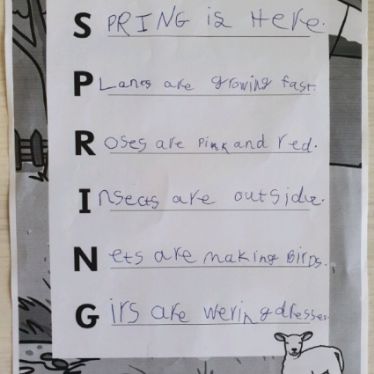 SPRING is Here.
PLants are growing fast.
Roses are pink and red.
Insects are outside.
Nets are making Birds.
Girs are wering dresses.